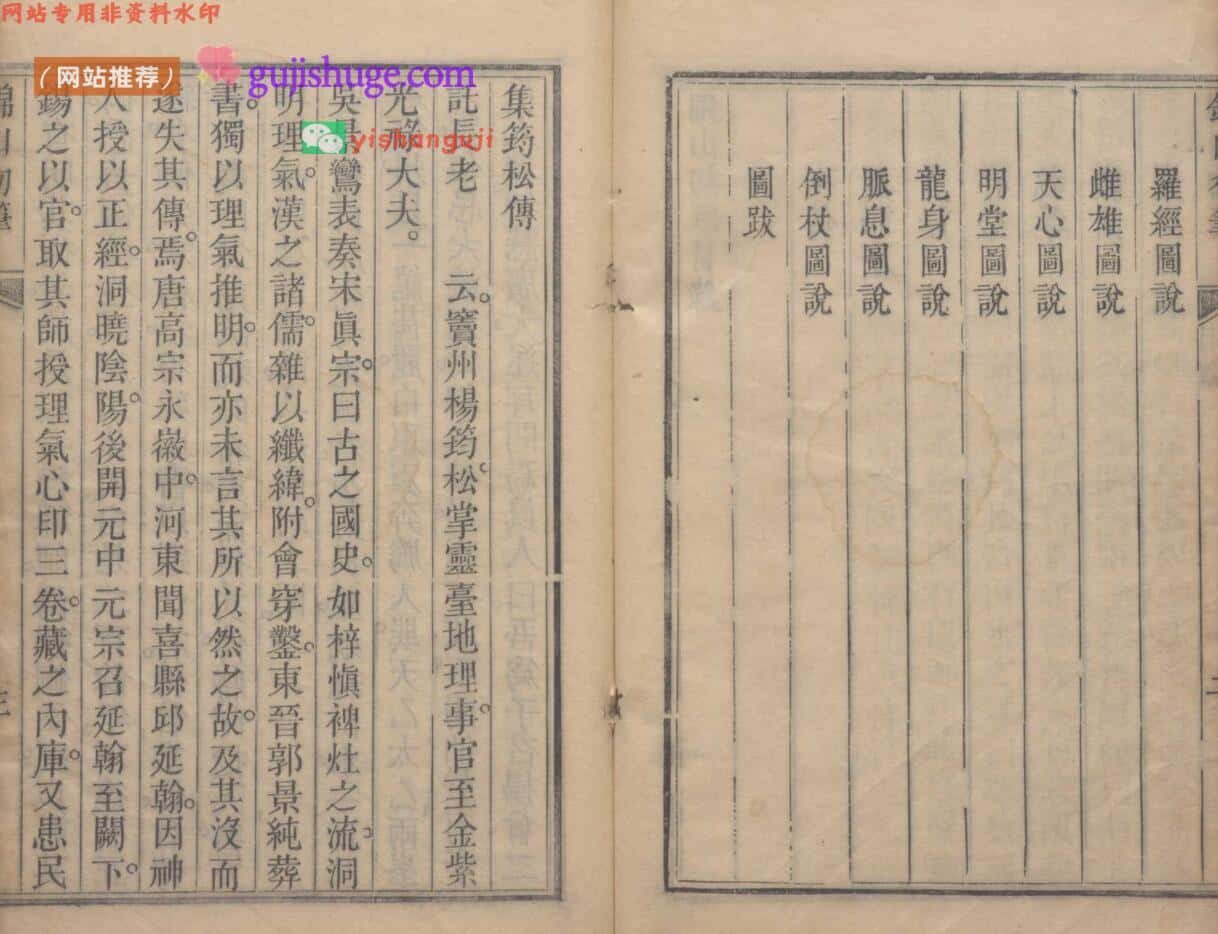 网站专用非资料水印
（网站推荐）
gujishuge.com
yishanguji
羅經圖說
雌雄圖說
天心圖說
明堂圖說
龍身圖說
脈息圖說
倒杖圖說
圖跋
集筠松傳
託長老　云。竇州楊筠松。掌靈臺地理事。官至金紫
光祿大夫。
吳景鸞表奏宋眞宗。曰古之國史。如梓愼裨灶之流。洞
明理氣。漢之諸儒。雜以纖緯。附會穿鑿。東晉郭景純葬
書。獨以理氣推明。而亦未言其所以然之故。及其沒而
遂失其傳。焉唐高宗永徽中。河東聞喜縣邱延翰。因神
人授以正經。洞曉陰陽。後開元中元宗召延翰至闕下。
錫之以官。取其師授理氣心印三卷。藏之內庫。又患民
三